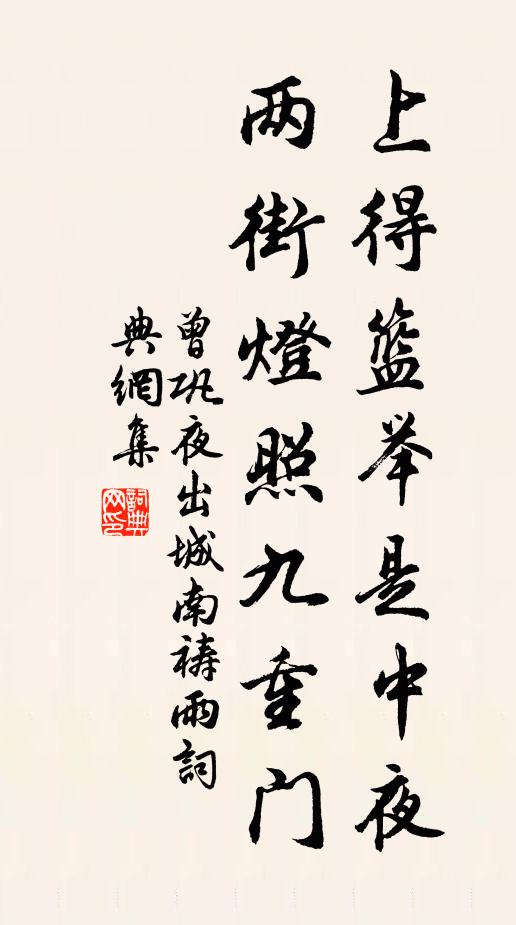 上得籃举是中夜
两街燈照九重门
曾巩夜出城南祷雨詞
典網集
詞典网印